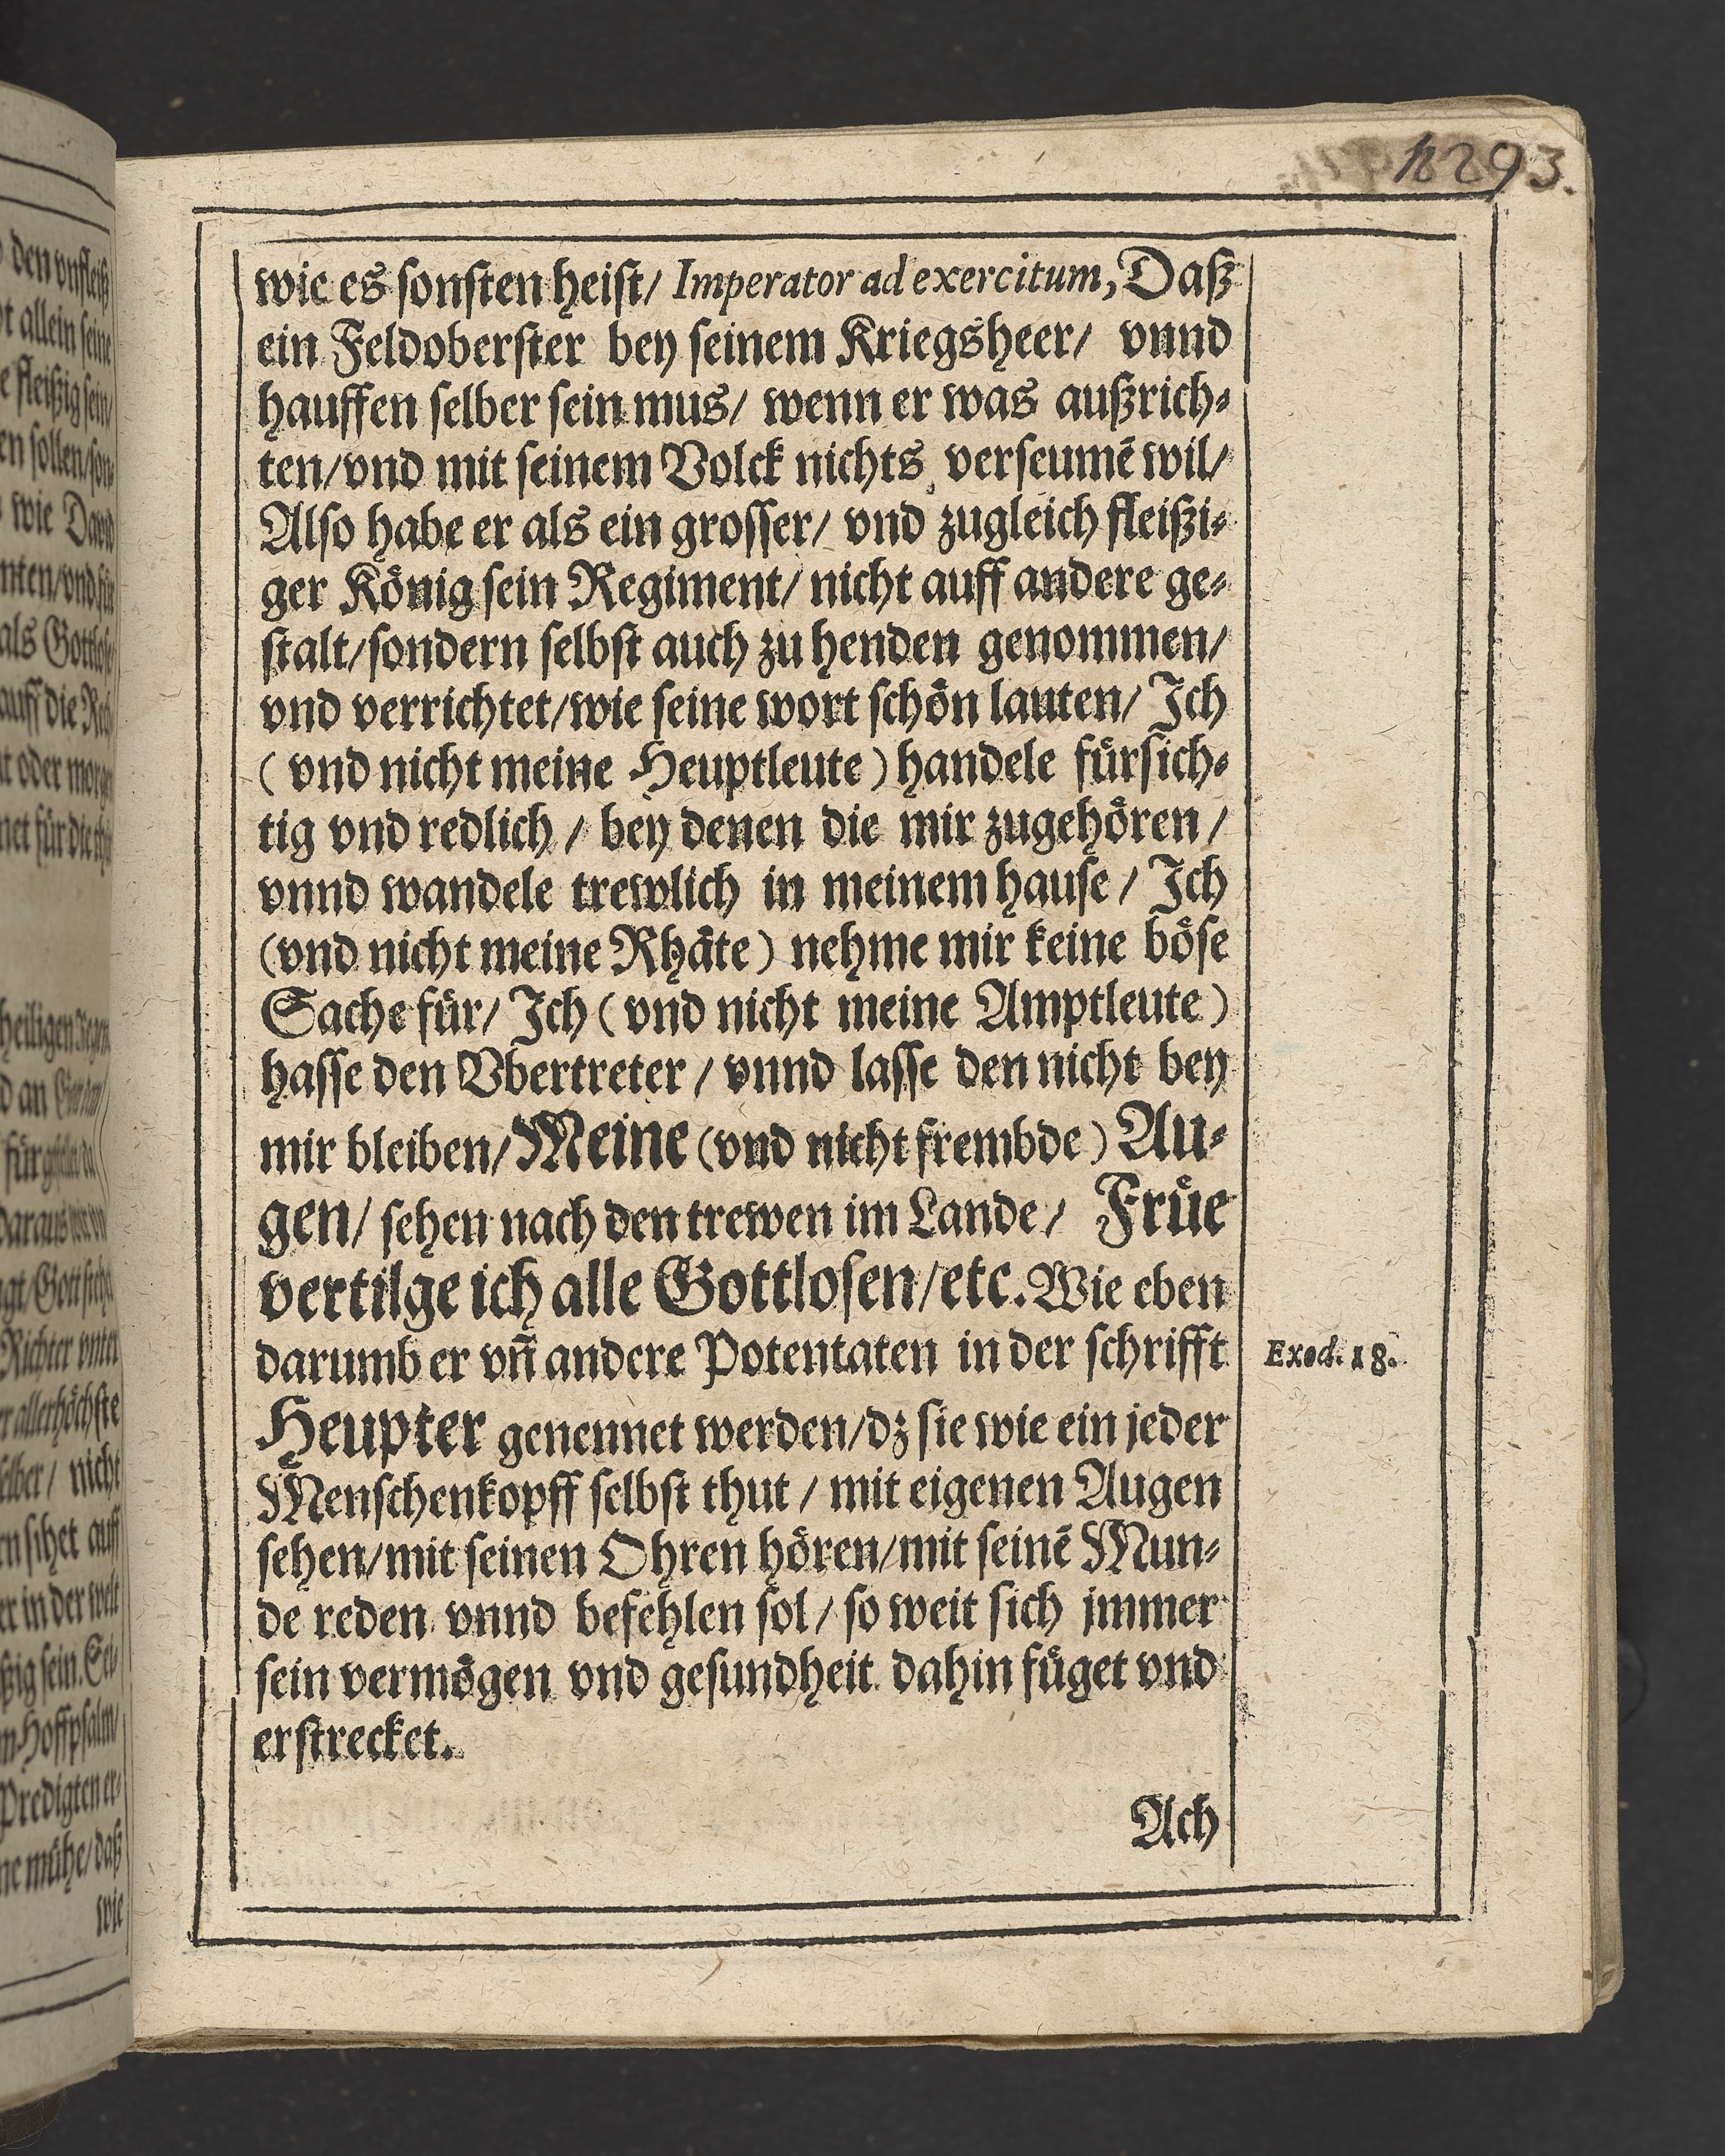 293.
wie es sonsten heist/ Imperator ad exercitum, Daß
ein Feldoberster bey seinem Kriegsheer/ vnnd
hauffen selber sein mus/ wenn er was außrich⸗
ten/vnd mit seinem Volck nichts verseumē wil/
Also habe er als ein grosser/ vnd zugleich fleißi⸗
ger Koͤnig sein Regiment/ nicht auff andere ge⸗
stalt/sondern selbst auch zu henden genommen/
vnd verrichtet/wie seine wort schoͤn lauten/ Ich
(vnd nicht meine Heuptleute) handele fuͤrsich⸗
tig vnd redlich / bey denen die mir zugehoͤren /
vnnd wandele trewlich in meinem hause / Ich
(vnd nicht meine Rhaͤte) nehme mir keine boͤse
Sache fuͤr/ Ich (vnd nicht meine Amptleute)
hasse den Vbertreter / vnnd lasse den nicht bey
mir bleiben/Meine (vnd nicht frembde) Au⸗
gen/ sehen nach den trewen im Lande/ Fruͤe
vertilge ich alle Gottlosen/etc. Wie eben
darumb er vn̄ andere Potentaten in der schrifft
Exod. 18.
Heupter genennet werden/dz sie wie ein jeder
Menschenkopff selbst thut / mit eigenen Augen
sehen/mit seinen Ohren hoͤren/mit seinē Mun⸗
de reden vnnd befehlen sol/ so weit sich jmmer
sein vermoͤgen vnd gesundheit dahin fuͤget vnd
erstrecket.
Ach